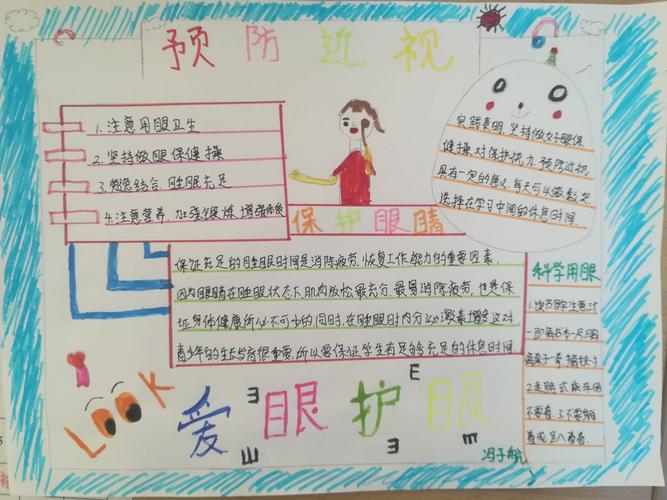 预防近视
1.注意用眼卫生
2.坚持做眼保健操
3.劳逸结合,睡眠充足
4.注意营养,加强锻炼,增强体质
实践表明,坚持做好眼保
健操,对保护视力,预防近视
具有一定的意义,每天可以做数次
选择在学习中间的休息时间.
保护眼睛
保证充足的睡眠时间是消除疲劳,恢复工作能力的重要因素.
因为眼睛在睡眠状态下,肌肉放松最充分,最易消除疲劳,也是保
证身体健康所必不可少的同时,在睡眠时内分泌激素增多这对
青少年的生长发育很重要,所以要保证学生有足够充足的休息时间.
科学用眼
一即离书本一尺,胸
离桌子一拳
2.走路或乘车时
不要看,3.不要躺
着或趴着看.
LOOK
爱眼护眼
E
冯子航